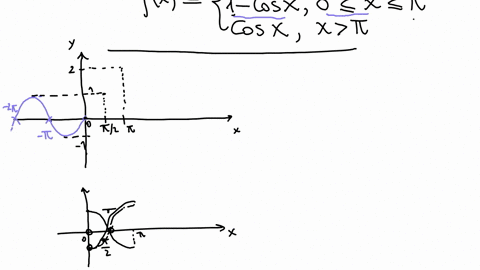 f(x) = { 1-cosx, 0 ≤ x ≤ π
cosx, x > π
y
2
1
-2π
-π
0
π/2
π
x
-1
1
0
π/2
π
x